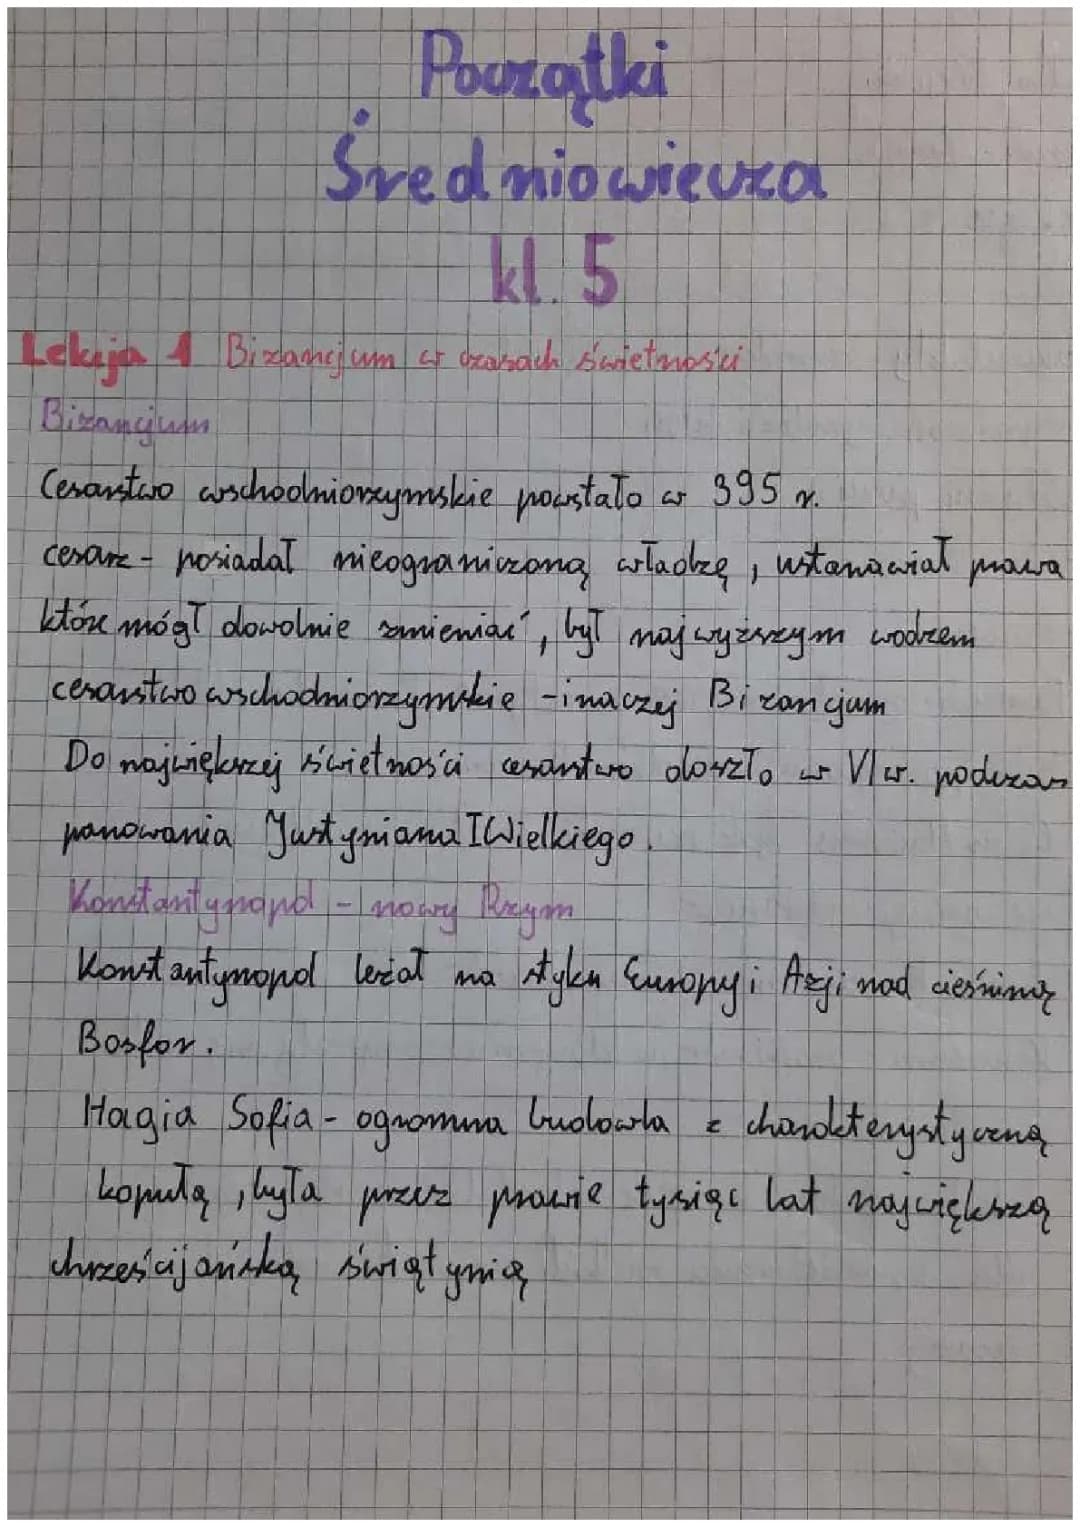 Początki
Średniowiecza
kl. 5
Lekcja 1 Bizancjum w czasach świetności
Bizancjum
Cesarstwo wschodniorzymskie powstało w 395 r.
cesarz - posiadał nieograniczoną władzę, ustanawiał prawa
które mógł dowolnie zmieniać, był najwyższym wodzem
cesarstwo wschodniorzymskie - inaczej Bizancjum
Do największej świetności cesarstwo doszło w VI w. podczas
panowania Justyniana I Wielkiego.
Konstantynopol - nowy Rzym
Konstantynopol leżał na styku Europy i Azji nad cieśniną
Bosfor.
Hagia Sofia - ogromna budowla z charakterystyczną
kopułą, była przez prawie tysiąc lat największą
chrześcijańską świątynią